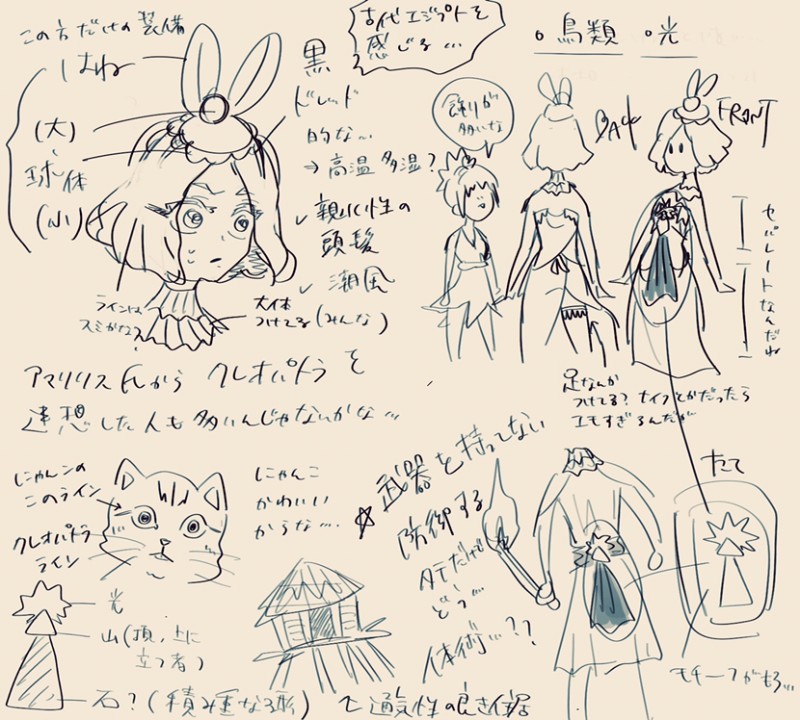 この方だけの装備
はね
(大)
球体
(小)
黒
ドレッド
的な…
→高温多湿?
✓親水性の
頭髪
✓潮風
古代エジプトを
感じる…
・鳥類 ・光
飾りが
多いな
BACK
FRONT
セパレートなんだね
ラインは
スミかな?
大体
つけてる(みんな)
アマリリスFLからクレオパトラを
連想した人も多いんじゃないかな…
足なんか
つけてる?ナイフとかだったら
エモすぎるんだが
にゃんこの
このライン
クレオパトラ
ライン
にゃんこ
かわいい
からな…
☆武器を持ってない
防御する
タテだけ
どう…
体術…??
たて
光
山(頂、上に
立つ者)
石?(積み重なる形)
て通気性の良き住居
モチーフがもろ…